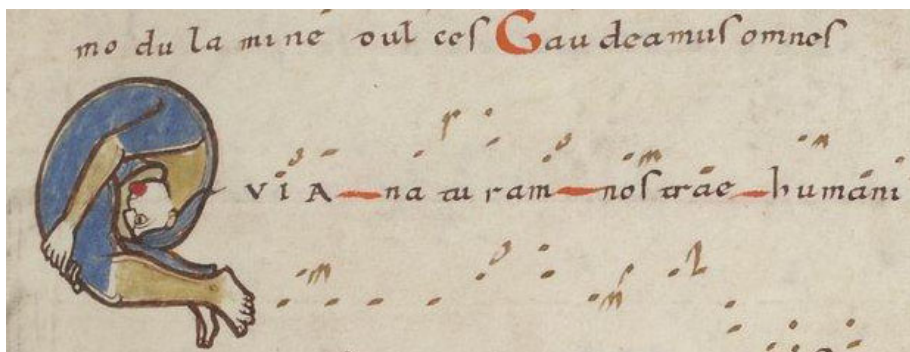 mo du la mine dul ces Gau deamus omnes
QVIA na tu ram nostrae humani